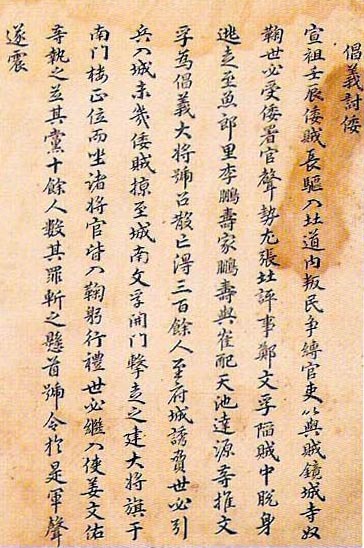 倡義討倭
宣祖壬辰倭賊長驅入北道內叛民爭縛官吏以與賊鏡城寺奴
鞠世必受倭署官聲勢尤張北評事鄭文孚陷賊中脫身
逃走至魚郎里李鵬壽家鵬壽與崔配天池達源等推文
孚為倡義大將號召散亡得三百餘人至府城誘賁世必引
兵入城未幾倭賊掠至城南文孚開門擊走之建大將旗于
南門樓正位而坐諸將官皆入鞠躬行禮世必繼入使姜文佑
等執之並其黨十餘人數其罪斬之懸首號令於是軍聲
遂震